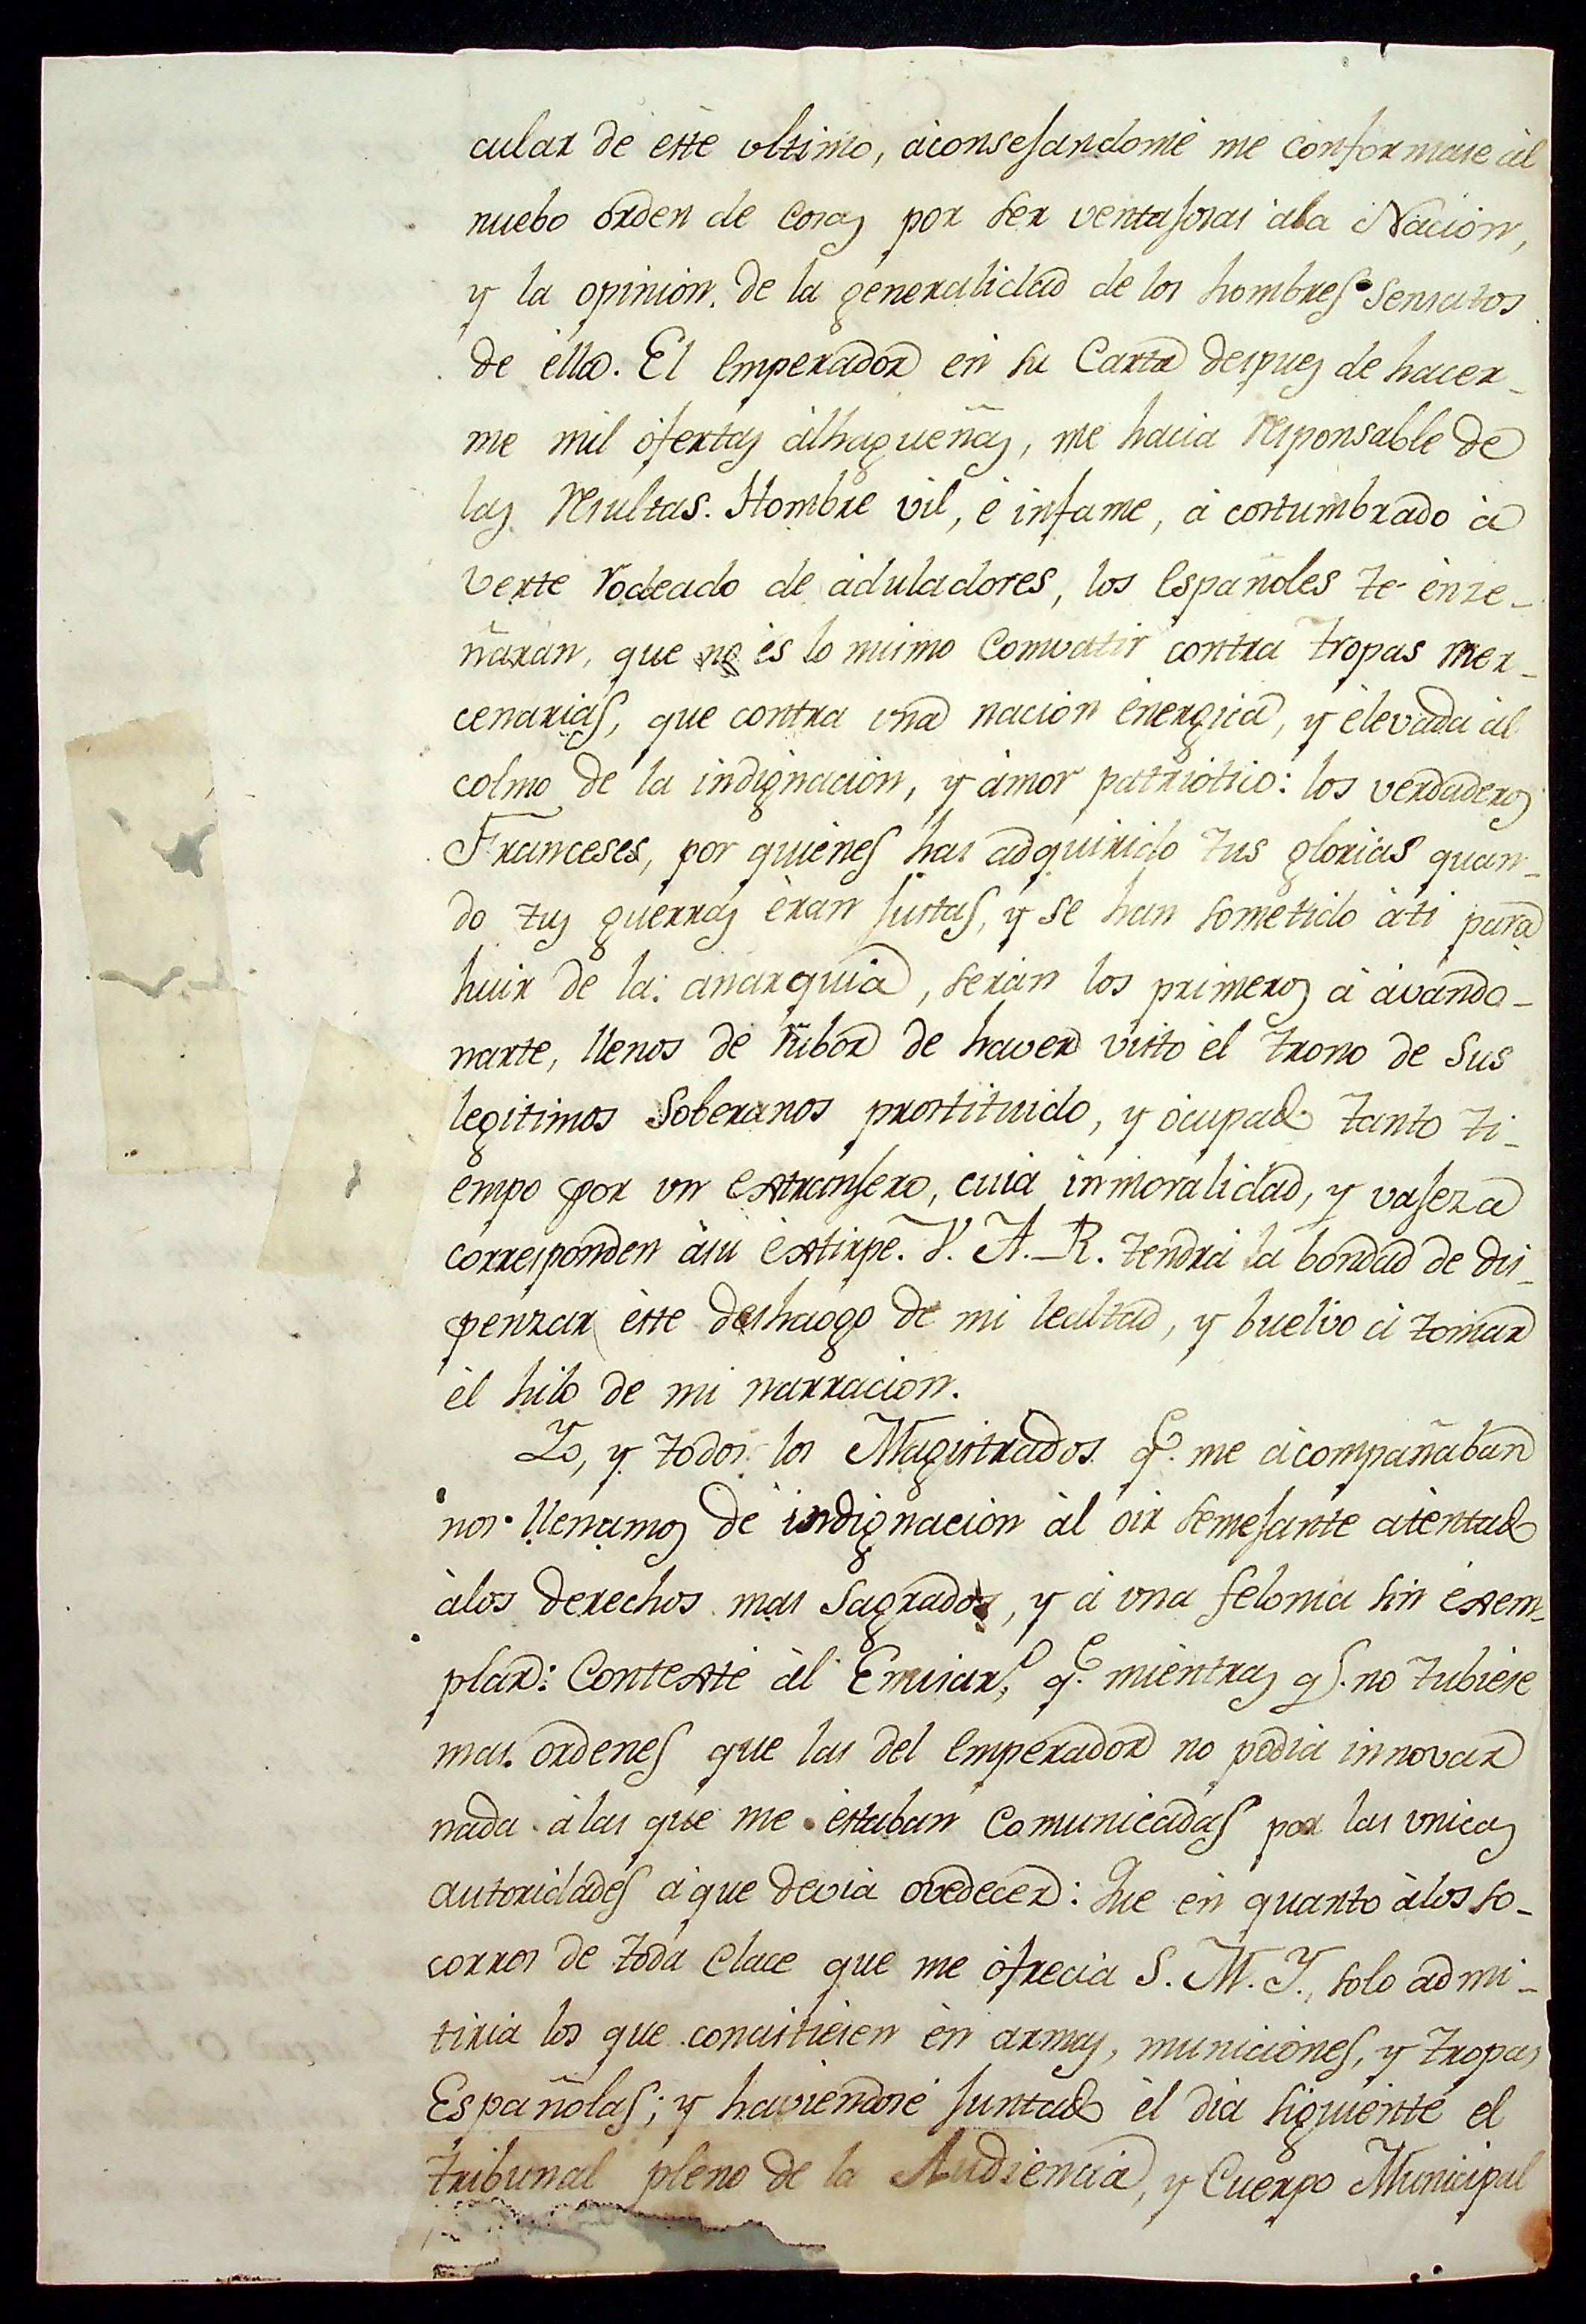 cular de este ultimo, aconsejandome me conformase al
nuebo orden de cosas por ser ventajosas ala Nacion,
y la opinion de la generalidad de los hombres sensatos
de ella. El Emperador en su Carta despues de hacer-
me mil ofertas alhagueñas, me hacia responsable de
las resultas. Hombre vil, è infame, à costumbrado à
verte rodeado de aduladores, los Españoles te enze-
ñaràn, que no ès lo mismo Comvatir contra tropas mer-
cenarias, que contra una nacion energica, y elevada al
colmo de la indignacion, y amor patriotico: los verdaderos
Franceses, por quienes has adquirido tus glorias quan-
do tus guerras èran justas, y se han sometido àti para
huir de la anarquia, seràn los primeros à avando-
narte, llenos de rubor de haver visto èl trono de sus
legitimos Soberanos prostituido, y ocupado tanto ti-
empo por un extranjero, cuia inmoralidad, y vajeza
corresponden àsu extirpe. V. A. R. tendrà la bondad de dis-
penzar èste deshaogo de mi lealtad, y buelvo à tomar
èl hilo de mi narracion.
Yo, y todos los Magistrados q.e me acompañaban
nos llenamos de indignacion àl oir semejante atentado
àlos derechos mas sagrados, y à una felonia sin exem-
plar: Contexté àl Emisar.o, q.e mientras q.e no tubiese
mas ordenes que las del Emperador no podia innovar
nada à las que me estaban Comunicadas por las unicas
autoridades à que devia ovedecer: Que èn quanto àlos so-
corros de toda Clace que me ofrecia S. M. Y., solo admi-
tiria los que concistiesen èn armas, municiones, y tropas
Españolas; y haviendose juntado èl dia siguiente el
tribunal pleno de la Audiencia, y Cuerpo Municipal